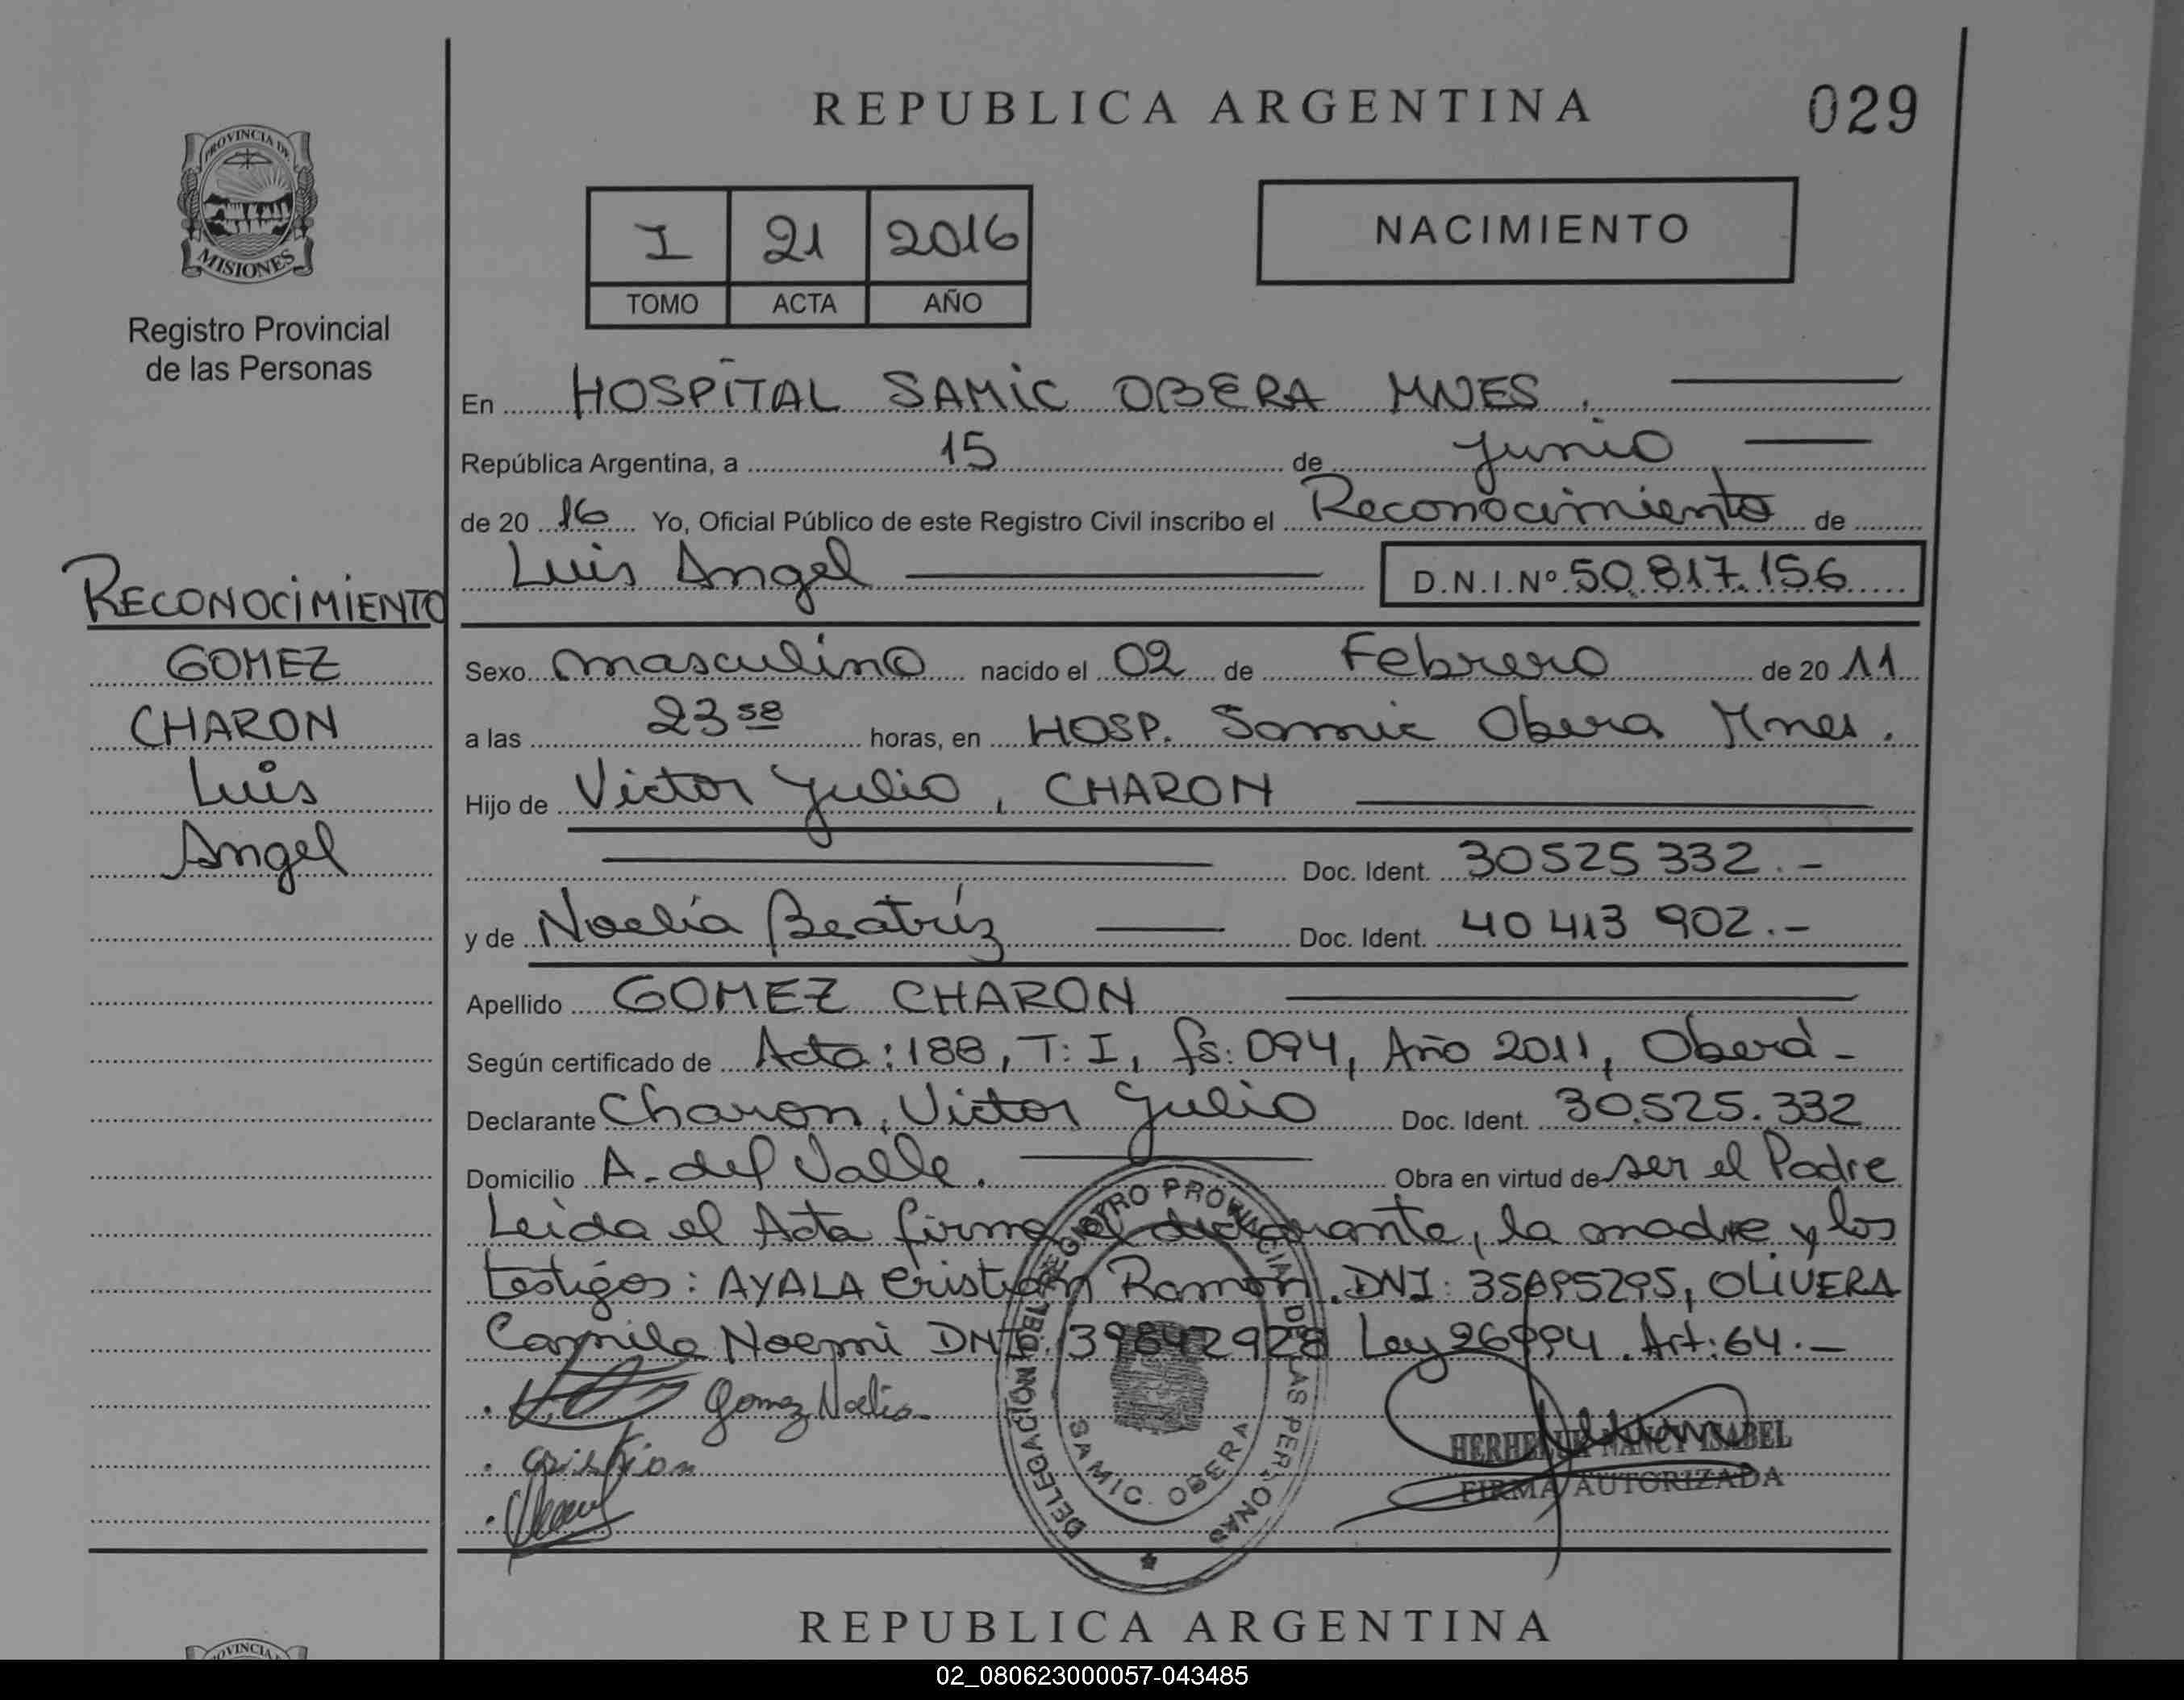 REPUBLICA ARGENTINA
029
PROVINCIA DE
MISIONES
Registro Provincial
de las Personas
I 21 2016
TOMO ACTA AÑO
NACIMIENTO
En HOSPITAL SAMIC OBERA MNES.
República Argentina, a 15 de Junio
de 20 16 Yo, Oficial Público de este Registro Civil inscribo el Reconocimiento de
Luis Angel D.N.I.Nº 50.817.156
RECONOCIMIENTO
GOMEZ
CHARON
Luis
Angel
Sexo masculino nacido el 02 de Febrero de 20 11
a las 23 58 horas, en HOSP. Samic Obera Mnes.
Hijo de Victor Julio, CHARON
Doc. Ident. 30525 332.-
y de Noelia Beatríz Doc. Ident. 40 413 902.-
Apellido GOMEZ CHARON
Según certificado de Acta: 188, T: I, fs: 094, Año 2011, Oberá-
Declarante Charon, Victor Julio Doc. Ident. 30.525.332
Domicilio A. del Valle. Obra en virtud de ser el Padre
Leida el Acta firma el declarante, la madre y los
testigos: AYALA Cristian Ramon. DNI: 35695295, OLIVERA
Camila Noemi DNI: 39642928 Ley 26994. Art: 64.-
Gomez Noelia
Cristian
DELEGACIÓN DEL REGISTRO PROVINCIAL DE LAS PERSONAS
SAMIC. OBERA
NANCY ISABEL
FIRMA AUTORIZADA
REPUBLICA ARGENTINA
PROVINCIA
02_080623000057-043485